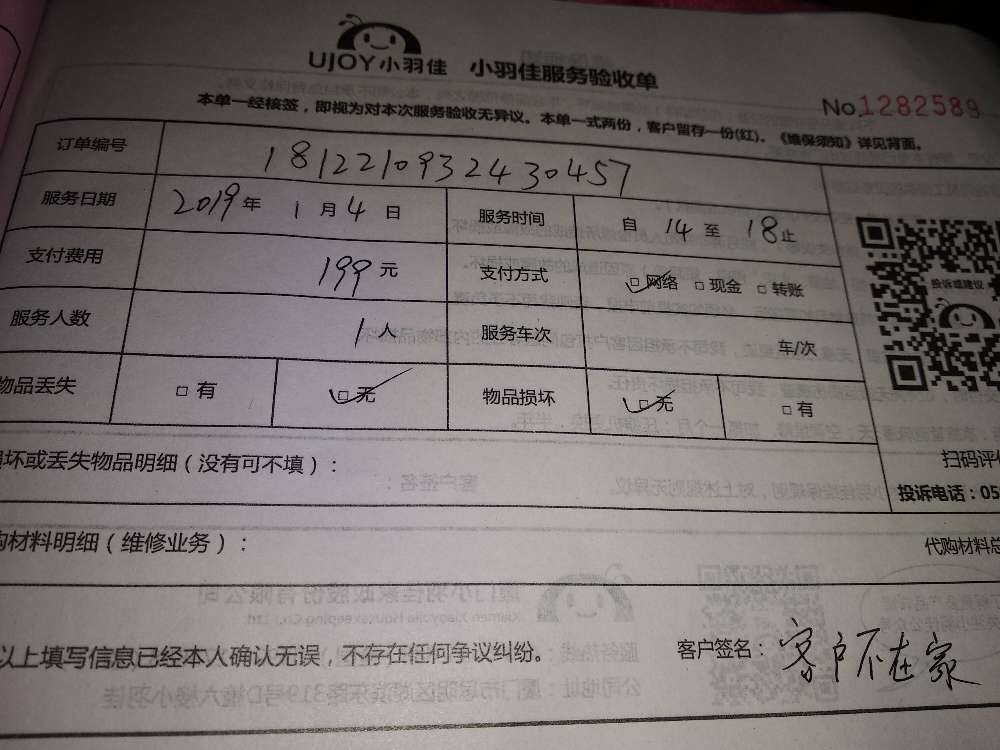 UJOY小羽佳 小羽佳服务验收单
No.1282589
本单一经核签，即视为对本次服务验收无异议。本单一式两份，客户留存一份(红)。《维保须知》详见背面。
订单编号 1812210932430457
服务日期 2019年 1月4日 服务时间 自 14 至 18止
支付费用 199元 支付方式 □网络 □现金 □转账
投诉或建议
服务人数 1人 服务车次 车/次
物品丢失 □有 □无 物品损坏 □无 □有
坏或丢失物品明细（没有可不填）：
扫码评
投诉电话：05
购材料明细（维修业务）： 代购材料总
以上填写信息已经本人确认无误，不存在任何争议纠纷。 客户签名：客户不在家